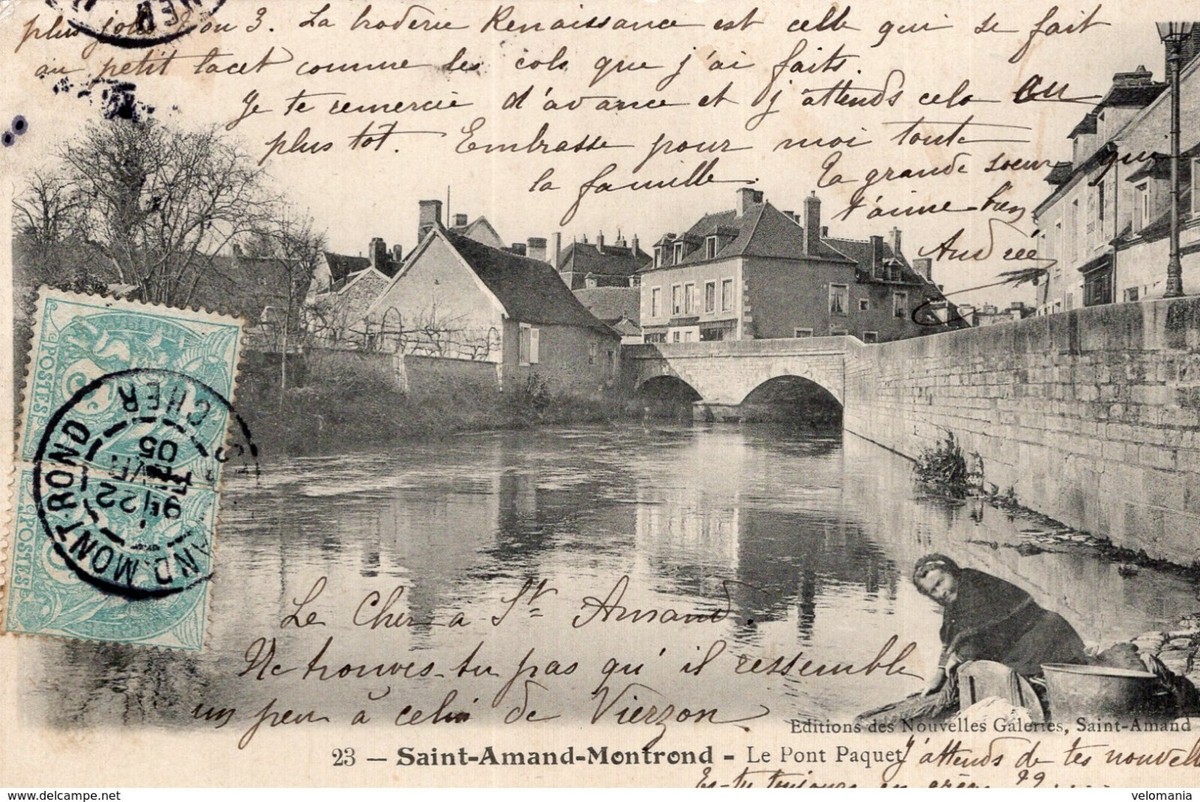 plus jolis 2 ou 3. La broderie Renaissance est celle qui se fait
au petit lacet comme les cols que j'ai faits.
Je te remercie d'avance et j'attends cela au
plus tot. Embrasse pour moi toute
la famille.
Ta grande soeur qui
t'aime bien
Andrée
POSTES
POSTES
AND-MONTROND
CHER
22
05
Le Cher à St Amand.
Ne trouves-tu pas qu'il ressemble
un peu à celui de Vierzon
Editions des Nouvelles Galeries, Saint-Amand
23 — Saint-Amand-Montrond - Le Pont Paquet
J'attends de tes nouvelles
Es-tu toujours en grève ??
velomania www.delcampe.net